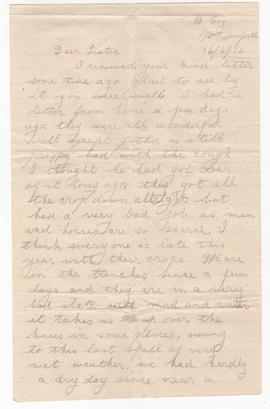 B. Coy
16/6/16
Dear Sister
I received your kind letter
some time ago. Glad to see by
it you were well. I had a
letter from home a few days
ago they were all wonderful
well except is still
pretty bad with the cough
I thought he had got clear
of it long ago. they got all
the crop down allright but
had a very bad job as men
and horses are so scarce I
think everyone is late this
year with their crops. We are
in the trenches since a few
days and they are in a very
bad state with mud and water
it takes us up over the
knees in some places, owing
to this last spell of very
wet weather, we had hardly
a dry day since near a